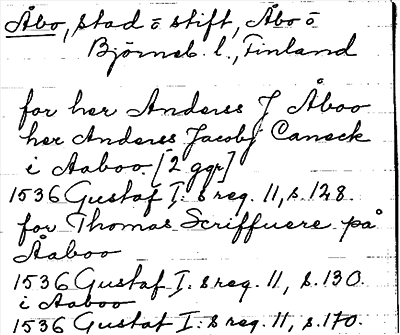 Åbo, stad o stift, Åbo o
Björneb. l., Finland
for her Anders J Åboo
her Anders Jacobj Caneck
i Aaboo. [2 ggr]
1536 Gustaf I: s reg. 11, s. 128.
for Thomas Scriffuere på
Åaboo
1536 Gustaf I: s reg. 11, s. 130.
i Aaboo
1536 Gustaf I: s reg. 11, s. 170.